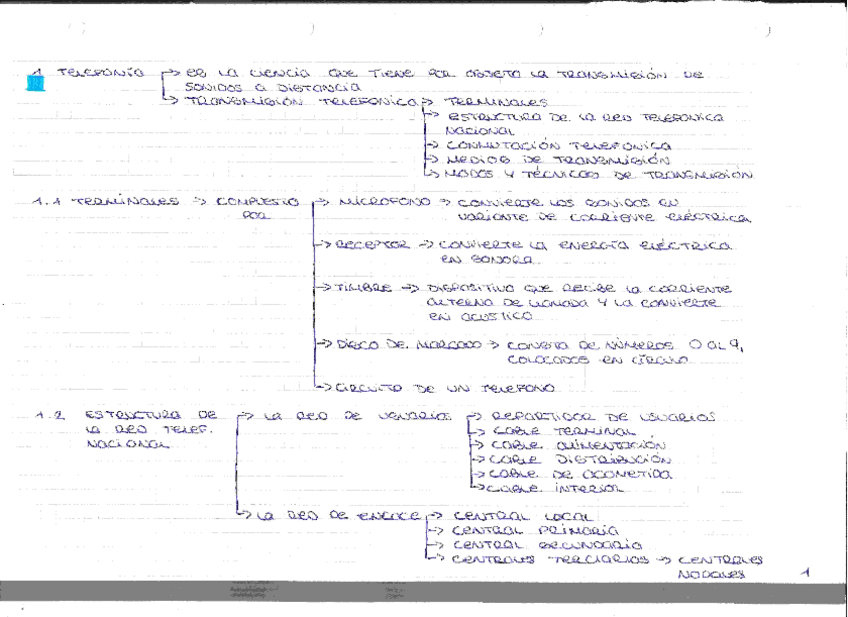 1 TELEFONÍA -> ES LA CIENCIA QUE TIENE POR OBJETO LA TRANSMISIÓN DE
SONIDOS A DISTANCIA
-> TRANSMISIÓN TELEFONICA -> TERMINALES
-> ESTRUCTURA DE LA RED TELEFONICA
NACIONAL
-> CONMUTACIÓN TELEFONICA
-> MEDIOS DE TRANSMISIÓN
-> MODOS Y TÉCNICAS DE TRANSMISIÓN
1.1 TERMINALES -> COMPUESTO -> MICROFONO -> CONVIERTE LOS SONIDOS EN
POR VARIANTE DE CORRIENTE ELÉCTRICA
-> RECEPTOR -> CONVIERTE LA ENERGÍA ELÉCTRICA
EN SONORA.
-> TIMBRE -> DISPOSITIVO QUE RECIBE LA CORRIENTE
ALTERNA DE LLAMADA Y LA CONVIERTE
EN ACUSTICO
-> DISCO DE MARCADO -> CONSTA DE NÚMEROS 0 AL 9,
COLOCADOS EN CÍRCULO
-> CIRCUITO DE UN TELEFONO
1.2 ESTRUCTURA DE -> LA RED DE USUARIOS -> REPARTIDOR DE USUARIOS
LA RED TELEF. -> CABLE TERMINAL
NACIONAL -> CABLE ALIMENTACIÓN
-> CABLE DISTRIBUCIÓN
-> CABLE DE ACOMETIDA
-> CABLE INTERIOR
-> LA RED DE ENLACE -> CENTRAL LOCAL
-> CENTRAL PRIMARIA
-> CENTRAL SECUNDARIA
-> CENTRALES TERCIARIAS -> CENTRALES
NODALES 1